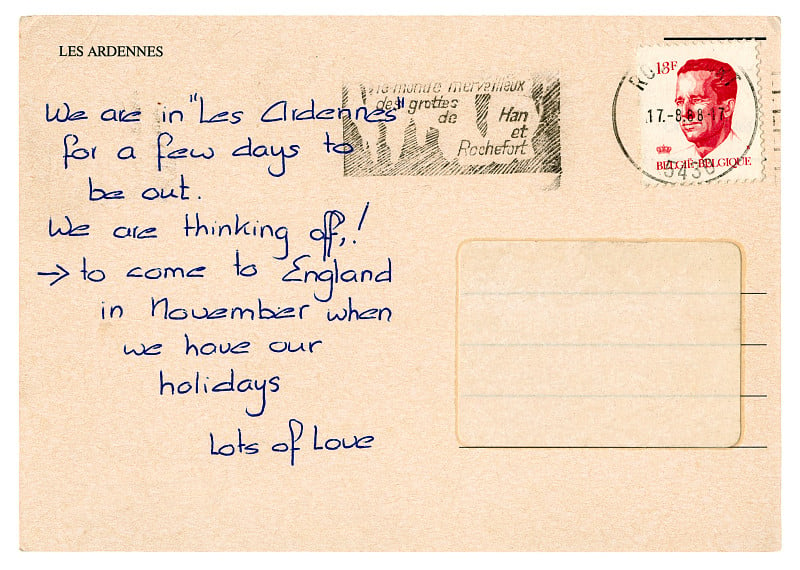 LES ARDENNES
We are in "Les Ardennes"
for a few days to
be out.
We are thinking off,!
→ to come to England
in November when
we have our
holidays
Lots of Love
monde merveilleux
des grottes
de Han
et
Rochefort
13F
17.-8.88-17
BELGIË-BELGIQUE
5430